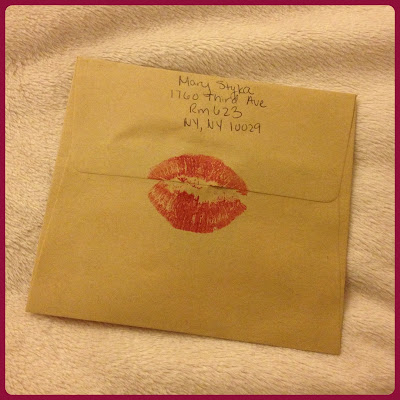 Mary Styka
1760 Third Ave
Rm 623
NY, NY 10029